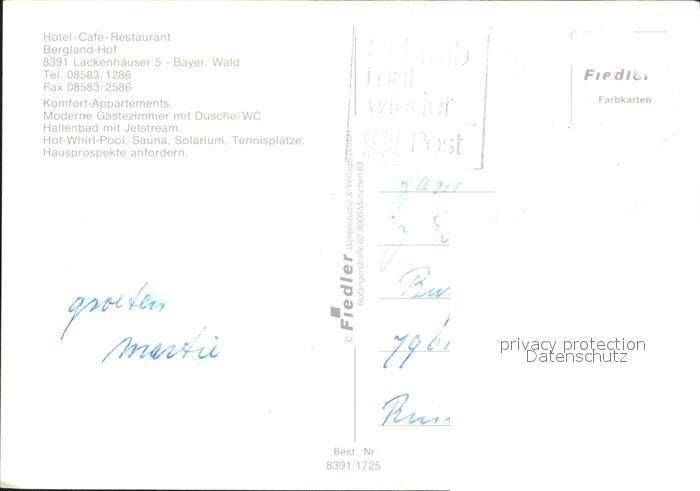 Hotel-Café-Restaurant
Bergland-Hof
8391 Lackenhäuser 5 - Bayer. Wald
Tel. 08583/1286
Fax 08583/2586
Komfort-Appartements.
Moderne Gästezimmer mit Dusche/WC
Hallenbad mit Jetstream.
Hot-Whirl-Pool, Sauna, Solarium, Tennisplätze.
Hausprospekte anfordern.
groeten
martie
© Fiedler Werbestudio & Verlags GmbH
Hofangerstraße 60, 8000 München 83
Best. Nr.
8391/1725
mal
wieder
Post
Fiedler
Farbkarten
privacy protection
Datenschutz